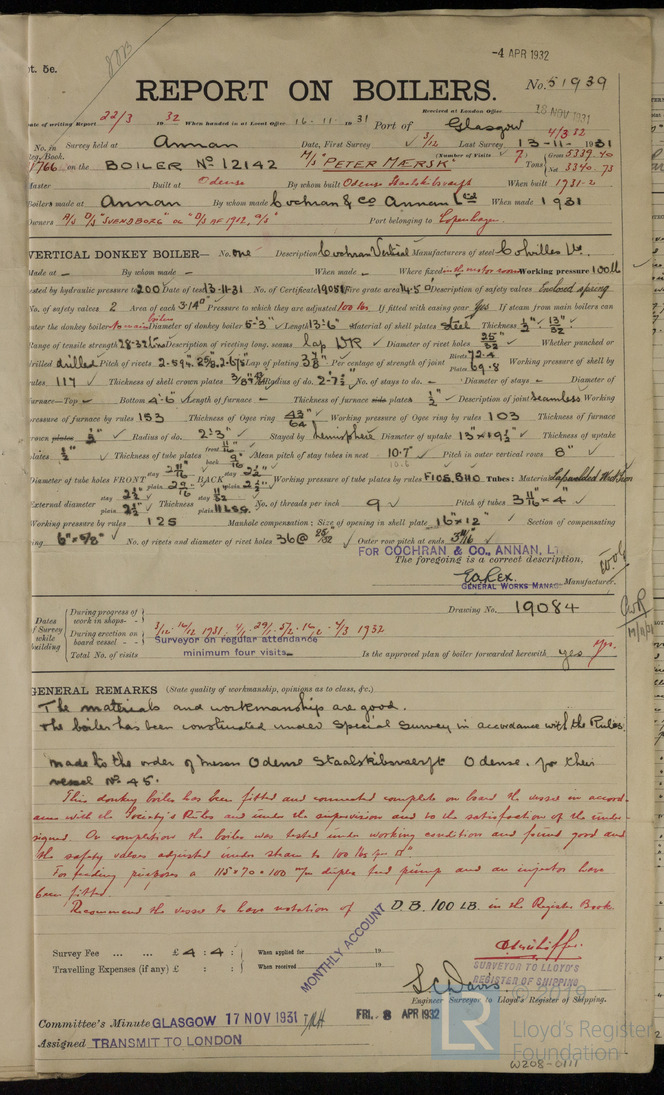 pt. 5c.
-4 APR 1932
REPORT ON BOILERS.
No. 51939
Received at London Office 18 NOV 1931
Date of writing Report 22/3 1932 When handed in at Local Office 16.11.1931 Port of Glasgow
No. in Reg. Book. Survey held at Annan Date, First Survey 3/12 Last Survey 4/3 32 13-11-1931
1766 on the BOILER No 12142 M/S "PETER MÆRSK" (Number of Visits 7) Tons Gross 5339.40 Net 3340.73
Master Built at Odense By whom built Odense Staalskibsværft When built 1931-2
Boilers made at Annan By whom made Cochran & Co Annan Ltd When made 1931
Owners A/S D/S "SVENDBORG" & "D/S AF 1912, A/S" Port belonging to Copenhagen
VERTICAL DONKEY BOILER— No. one Description Cochran Vertical Manufacturers of steel Colvilles Ltd.
Made at – By whom made – When made – Where fixed in the motor room Working pressure 100 lb
tested by hydraulic pressure to 200 Date of test 13.11.31 No. of Certificate 19081 Fire grate area 14.5 Description of safety valves Enclosed spring
No. of safety valves 2 Area of each 3.14" Pressure to which they are adjusted 100 lbs If fitted with easing gear Yes If steam from main boilers can
enter the donkey boiler No main boilers Diameter of donkey boiler 5-3" Length 13-6" Material of shell plates Steel Thickness 1/2" 13/32"
Range of tensile strength 28-32 tons Description of riveting long. seams lap DR Diameter of rivet holes 25/32 Whether punched or
drilled drilled Pitch of rivets 2.594, 2 5/8, 2.675 Lap of plating 3 7/8" Per centage of strength of joint Rivets 72.4 Plate 69.8 Working pressure of shell by
rules 117 Thickness of shell crown plates Radius of do. 2-7 1/2" No. of stays to do. – Diameter of stays – Diameter of
furnace—Top – Bottom 4-6 Length of furnace – Thickness of furnace side plates 1/2" Description of joint Seamless Working
pressure of furnace by rules 153 Thickness of Ogee ring 43/64" Working pressure of Ogee ring by rules 103 Thickness of furnace
crown plates 1/2" Radius of do. 2'3" Stayed by hemisphere Diameter of uptake Thickness of uptake
plates 1/2" Thickness of tube plates front 11/16" back 9/16" Mean pitch of stay tubes in nest 10.7" 10.6 Pitch in outer vertical rows 8"
Diameter of tube holes FRONT stay 2 11/16" plain 2 9/16" BACK stay 2 1/2" plain 2 1/2" Working pressure of tube plates by rules F105, B110 Tubes: Material Lapwelded Wrot Iron
External diameter stay 2 1/2" plain 2 1/2" Thickness stay 11/32 plain 11 LSG. No. of threads per inch 9 Pitch of tubes 3 11/16" × 4"
Working pressure by rules 125 Manhole compensation: Size of opening in shell plate 16" × 12" Section of compensating
ring 6" × 5/8" No. of rivets and diameter of rivet holes 36 @ 25/32 Outer row pitch at ends 3 11/16"
FOR COCHRAN & Co., ANNAN, LT
The foregoing is a correct description,
GENERAL WORKS MANAG. Manufacturer.
Drawing No. 19084
Dates of Survey while building
During progress of work in shops - -
During erection on board vessel - -
3/12 16/12 1931. 4/1. 29/1. 5/2. 16/2. 4/3 1932
Surveyor on regular attendance
Total No. of visits minimum four visits
Is the approved plan of boiler forwarded herewith yes yes.
GENERAL REMARKS (State quality of workmanship, opinions as to class, &c.)
The materials and workmanship are good.
The boiler has been constructed under Special Survey in accordance with the Rules.
Made to the order of Messrs Odense Staalskibsvaerft Odense. for their
vessel No 45.
This donkey boiler has been fitted and connected complete on board the vessel in accord-
ance with the Society's Rules and under the supervision and to the satisfaction of the under-
signed. On completion the boiler was tested under working condition and found good and
the safety valves adjusted under steam to 100 lbs per □"
For feeding purposes a 115×70×100 m/m duplex feed pump and an injector have
been fitted.
Recommend the vessel to have notation of D.B. 100 LB. in the Register Book
Survey Fee ... ... £ 4 : 4 : When applied for 19
Travelling Expenses (if any) £ : : When received 19
MONTHLY ACCOUNT
SURVEYOR TO LLOYD'S
REGISTER OF SHIPPING
Engineer Surveyor to Lloyd's Register of Shipping.
Committee's Minute GLASGOW 17 NOV 1931
FRI. 8 APR 1932
Assigned TRANSMIT TO LONDON
© 2019
LR
Lloyd's Register
Foundation
W208-0111